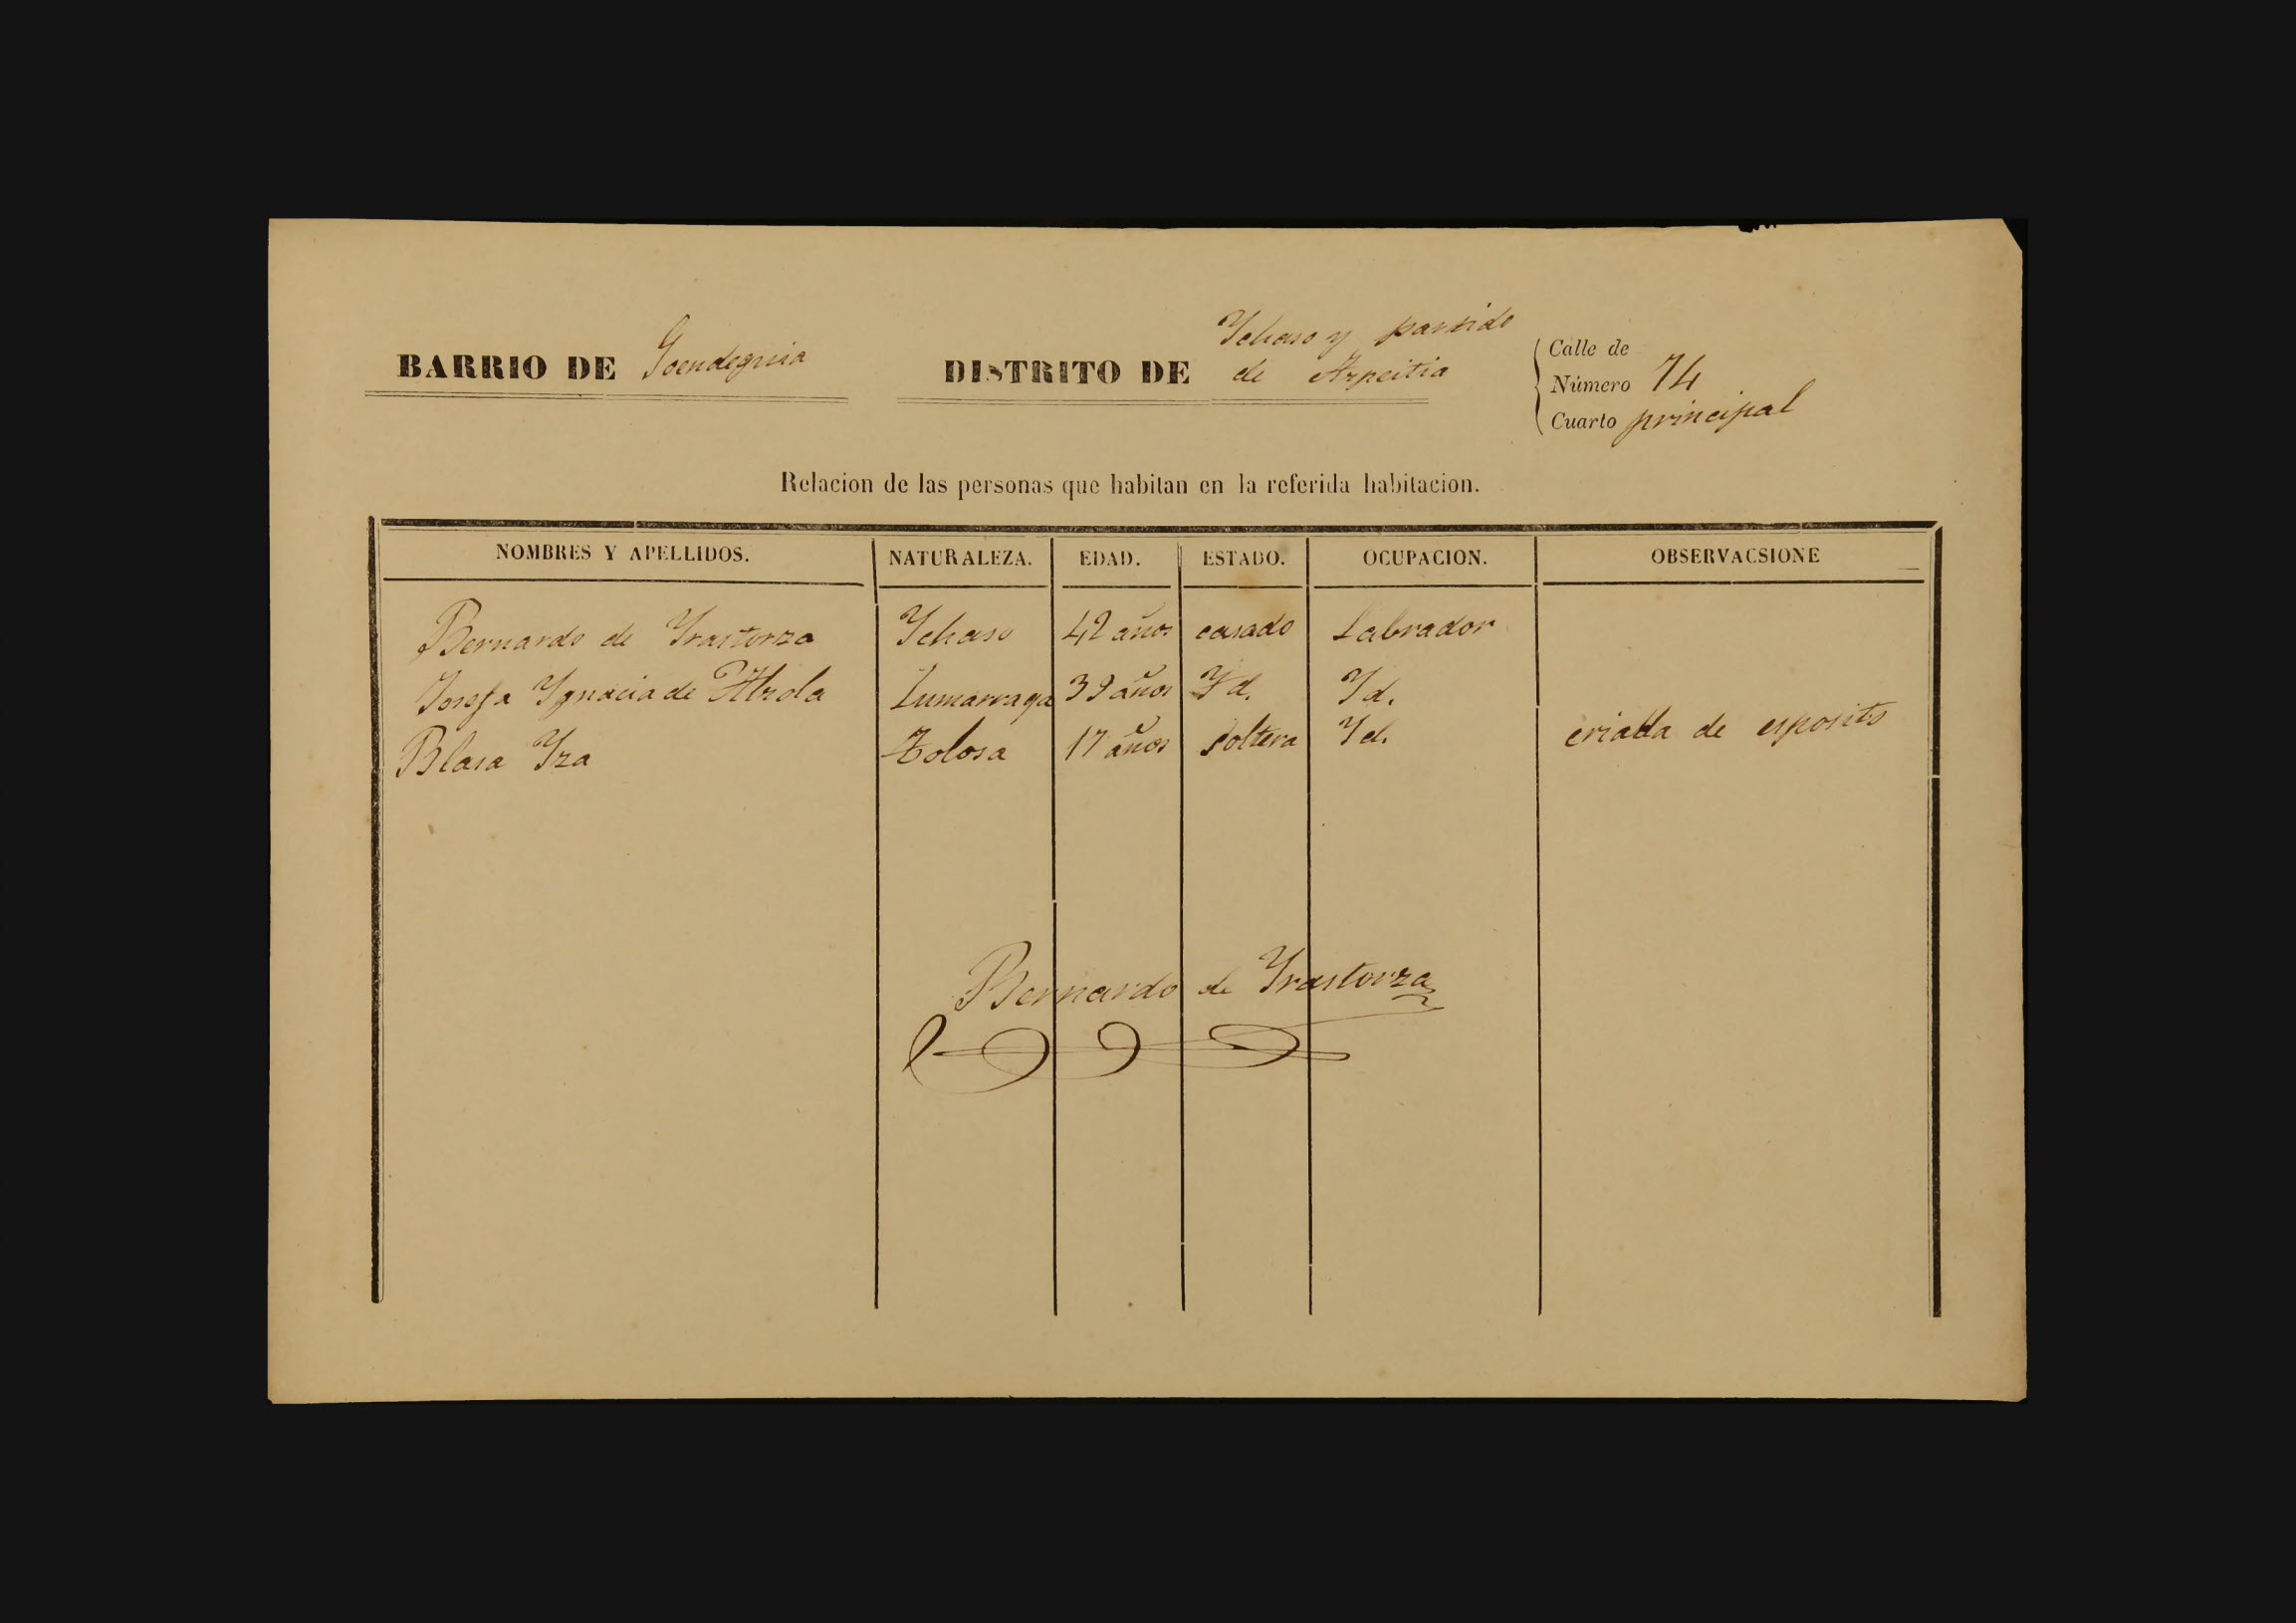 Ychaso y partido
BARRIO DE Goendeguia DISTRITO DE de Azpeitia
Calle de
Número 14
Cuarto principal
Relacion de las personas que habitan en la referida habitacion.
NOMBRES Y APELLIDOS. NATURALEZA. EDAD. ESTADO. OCUPACION. OBSERVACSIONE
Bernardo de Yrastorza Ychaso 42 años casado Labrador
Josefa Ygnacia de Alzola Zumarraga 39 años Yd. Yd.
Blasa Yza Tolosa 17 años soltera Yd. criada de esposito
Bernardo de Yrastorza